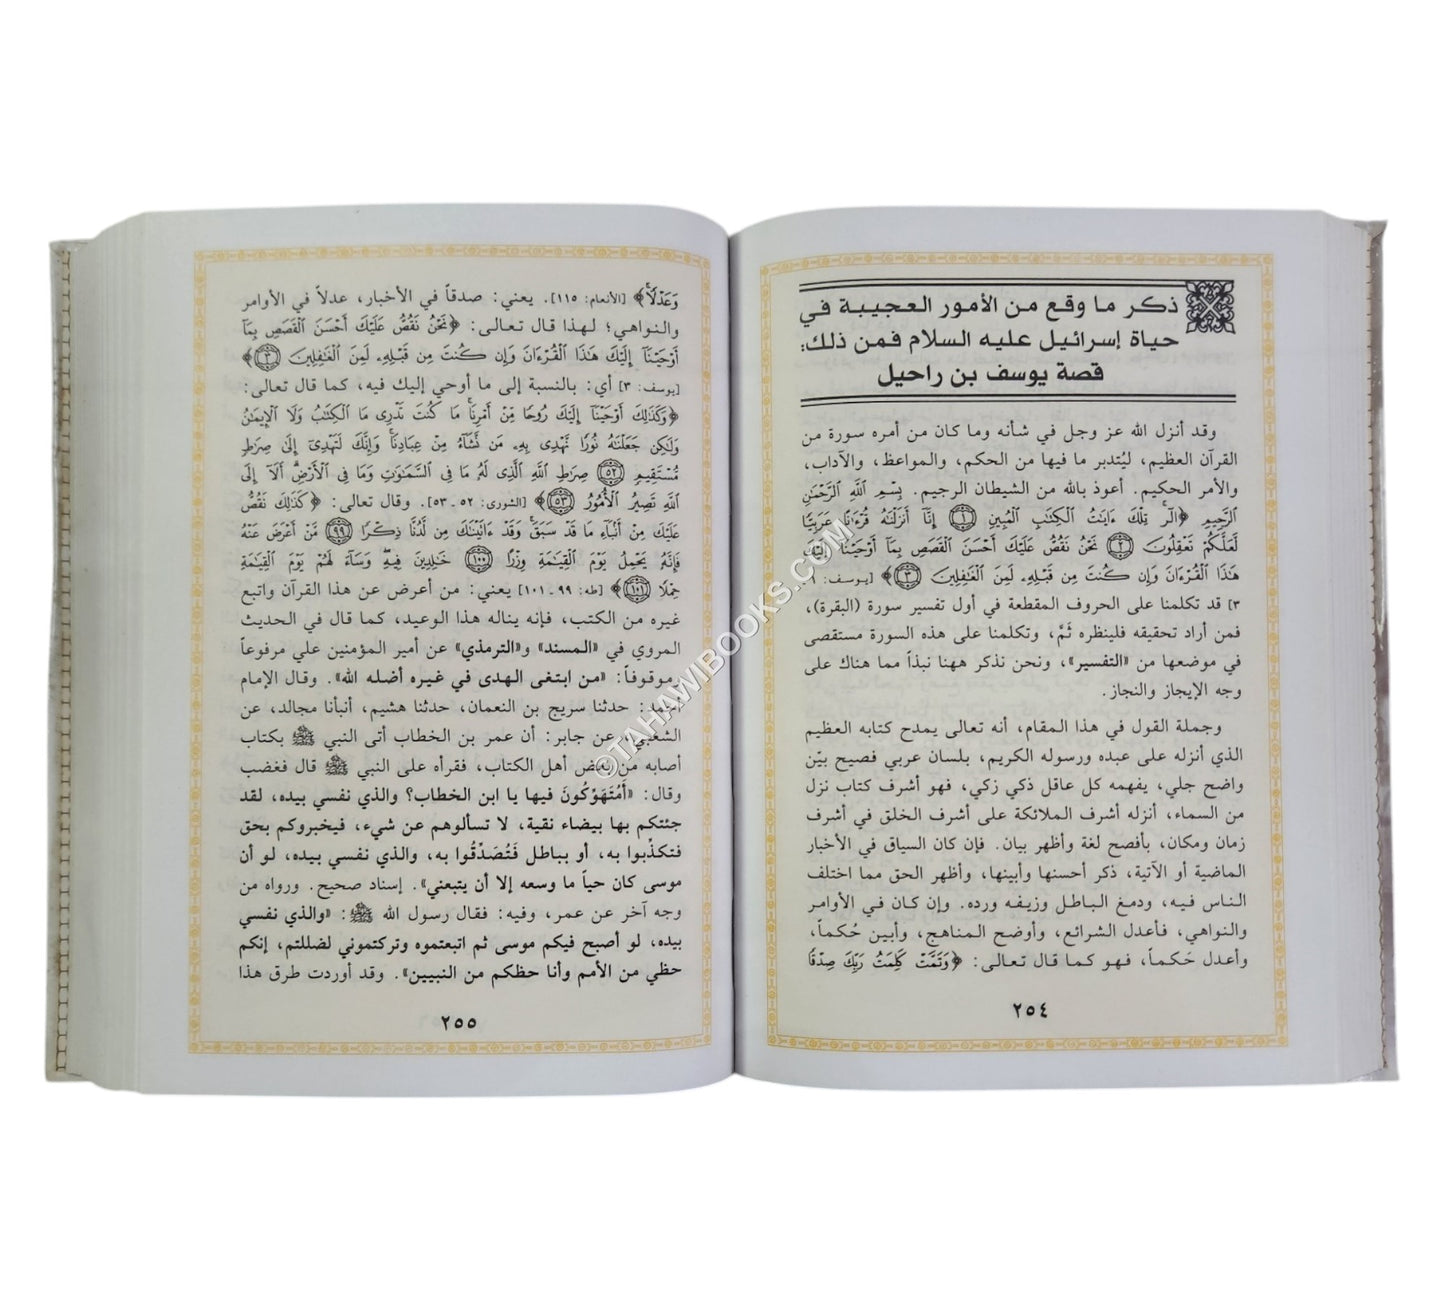 ذكر ما وقع من الأمور العجيبة في
حياة إسرائيل عليه السلام فمن ذلك:
قصة يوسف بن راحيل
وقد أنزل الله عز وجل في شأنه وما كان من أمره سورة من
القرآن العظيم، ليُتدبر ما فيها من الحكم، والمواعظ، والآداب،
والأمر الحكيم. أعوذ بالله من الشيطان الرجيم. بِسْمِ ٱللَّهِ ٱلرَّحْمَٰنِ
ٱلرَّحِيمِ ﴿الٓر ۚ تِلْكَ ءَايَٰتُ ٱلْكِتَٰبِ ٱلْمُبِينِ ۝١ إِنَّآ أَنزَلْنَٰهُ قُرْءَٰنًا عَرَبِيًّا
لَّعَلَّكُمْ تَعْقِلُونَ ۝٢ نَحْنُ نَقُصُّ عَلَيْكَ أَحْسَنَ ٱلْقَصَصِ بِمَآ أَوْحَيْنَآ إِلَيْكَ
هَٰذَا ٱلْقُرْءَانَ وَإِن كُنتَ مِن قَبْلِهِۦ لَمِنَ ٱلْغَٰفِلِينَ ۝٣﴾ [يوسف: ١ـ
٣] قد تكلمنا على الحروف المقطعة في أول تفسير سورة (البقرة)،
فمن أراد تحقيقه فلينظره ثَمَّ، وتكلمنا على هذه السورة مستقصى
في موضعها من «التفسير»، ونحن نذكر ههنا نبذاً مما هناك على
وجه الإيجاز والنجاز.
وجملة القول في هذا المقام، أنه تعالى يمدح كتابه العظيم
الذي أنزله على عبده ورسوله الكريم، بلسان عربي فصيح بيّن
واضح جلي، يفهمه كل عاقل ذكي زكي، فهو أشرف كتاب نزل
من السماء، أنزله أشرف الملائكة على أشرف الخلق في أشرف
زمان ومكان، بأفصح لغة وأظهر بيان. فإن كان السياق في الأخبار
الماضية أو الآتية، ذكر أحسنها وأبينها، وأظهر الحق مما اختلف
الناس فيه، ودمغ الباطل وزيفه ورده. وإن كان في الأوامر
والنواهي، فأعدل الشرائع، وأوضح المناهج، وأبين حُكماً،
وأعدل حَكماً، فهو كما قال تعالى: ﴿وَتَمَّتْ كَلِمَتُ رَبِّكَ صِدْقًا
٢٥٤
وَعَدْلًا ۚ﴾ [الأنعام: ١١٥]. يعني: صدقاً في الأخبار، عدلاً في الأوامر
والنواهي؛ لهذا قال تعالى: ﴿نَحْنُ نَقُصُّ عَلَيْكَ أَحْسَنَ ٱلْقَصَصِ بِمَآ
أَوْحَيْنَآ إِلَيْكَ هَٰذَا ٱلْقُرْءَانَ وَإِن كُنتَ مِن قَبْلِهِۦ لَمِنَ ٱلْغَٰفِلِينَ ۝٣﴾
[يوسف: ٣] أي: بالنسبة إلى ما أوحي إليك فيه، كما قال تعالى:
﴿وَكَذَٰلِكَ أَوْحَيْنَآ إِلَيْكَ رُوحًا مِّنْ أَمْرِنَا ۚ مَا كُنتَ تَدْرِى مَا ٱلْكِتَٰبُ وَلَا ٱلْإِيمَٰنُ
وَلَٰكِن جَعَلْنَٰهُ نُورًا نَّهْدِى بِهِۦ مَن نَّشَآءُ مِنْ عِبَادِنَا ۚ وَإِنَّكَ لَتَهْدِىٓ إِلَىٰ صِرَٰطٍ
مُّسْتَقِيمٍ ۝٥٢ صِرَٰطِ ٱللَّهِ ٱلَّذِى لَهُۥ مَا فِى ٱلسَّمَٰوَٰتِ وَمَا فِى ٱلْأَرْضِ ۗ أَلَآ إِلَى
ٱللَّهِ تَصِيرُ ٱلْأُمُورُ ۝٥٣﴾ [الشورى: ٥٢ ـ ٥٣]. وقال تعالى: ﴿كَذَٰلِكَ نَقُصُّ
عَلَيْكَ مِنْ أَنۢبَآءِ مَا قَدْ سَبَقَ ۚ وَقَدْ ءَاتَيْنَٰكَ مِن لَّدُنَّا ذِكْرًا ۝٩٩ مَّنْ أَعْرَضَ عَنْهُ
فَإِنَّهُۥ يَحْمِلُ يَوْمَ ٱلْقِيَٰمَةِ وِزْرًا ۝١٠٠ خَٰلِدِينَ فِيهِ ۖ وَسَآءَ لَهُمْ يَوْمَ ٱلْقِيَٰمَةِ
حِمْلًا ۝١٠١﴾ [طه: ٩٩ ـ ١٠١] يعني: من أعرض عن هذا القرآن واتبع
غيره من الكتب، فإنه يناله هذا الوعيد، كما قال في الحديث
المروي في «المسند» و«الترمذي» عن أمير المؤمنين علي مرفوعاً
وموقوفاً: «من ابتغى الهدى في غيره أضله الله». وقال الإمام
أحمد: حدثنا سريج بن النعمان، حدثنا هشيم، أنبأنا مجالد، عن
الشعبي، عن جابر: أن عمر بن الخطاب أتى النبي ﷺ بكتاب
أصابه من بعض أهل الكتاب، فقرأه على النبي ﷺ قال فغضب
وقال: «أَمُتَهَوِّكُونَ فيها يا ابن الخطاب؟ والذي نفسي بيده، لقد
جئتكم بها بيضاء نقية، لا تسألوهم عن شيء، فيخبروكم بحق
فتكذّبوا به، أو بباطل فَتُصَدِّقُوا به، والذي نفسي بيده، لو أن
موسى كان حياً ما وسعه إلا أن يتبعني». إسناد صحيح. ورواه من
وجه آخر عن عمر، وفيه: فقال رسول الله ﷺ: «والذي نفسي
بيده، لو أصبح فيكم موسى ثم اتبعتموه وتركتموني لضللتم، إنكم
حظي من الأمم وأنا حظكم من النبيين». وقد أوردت طرق هذا
٢٥٥
©TAHAWIBOOKS.COM